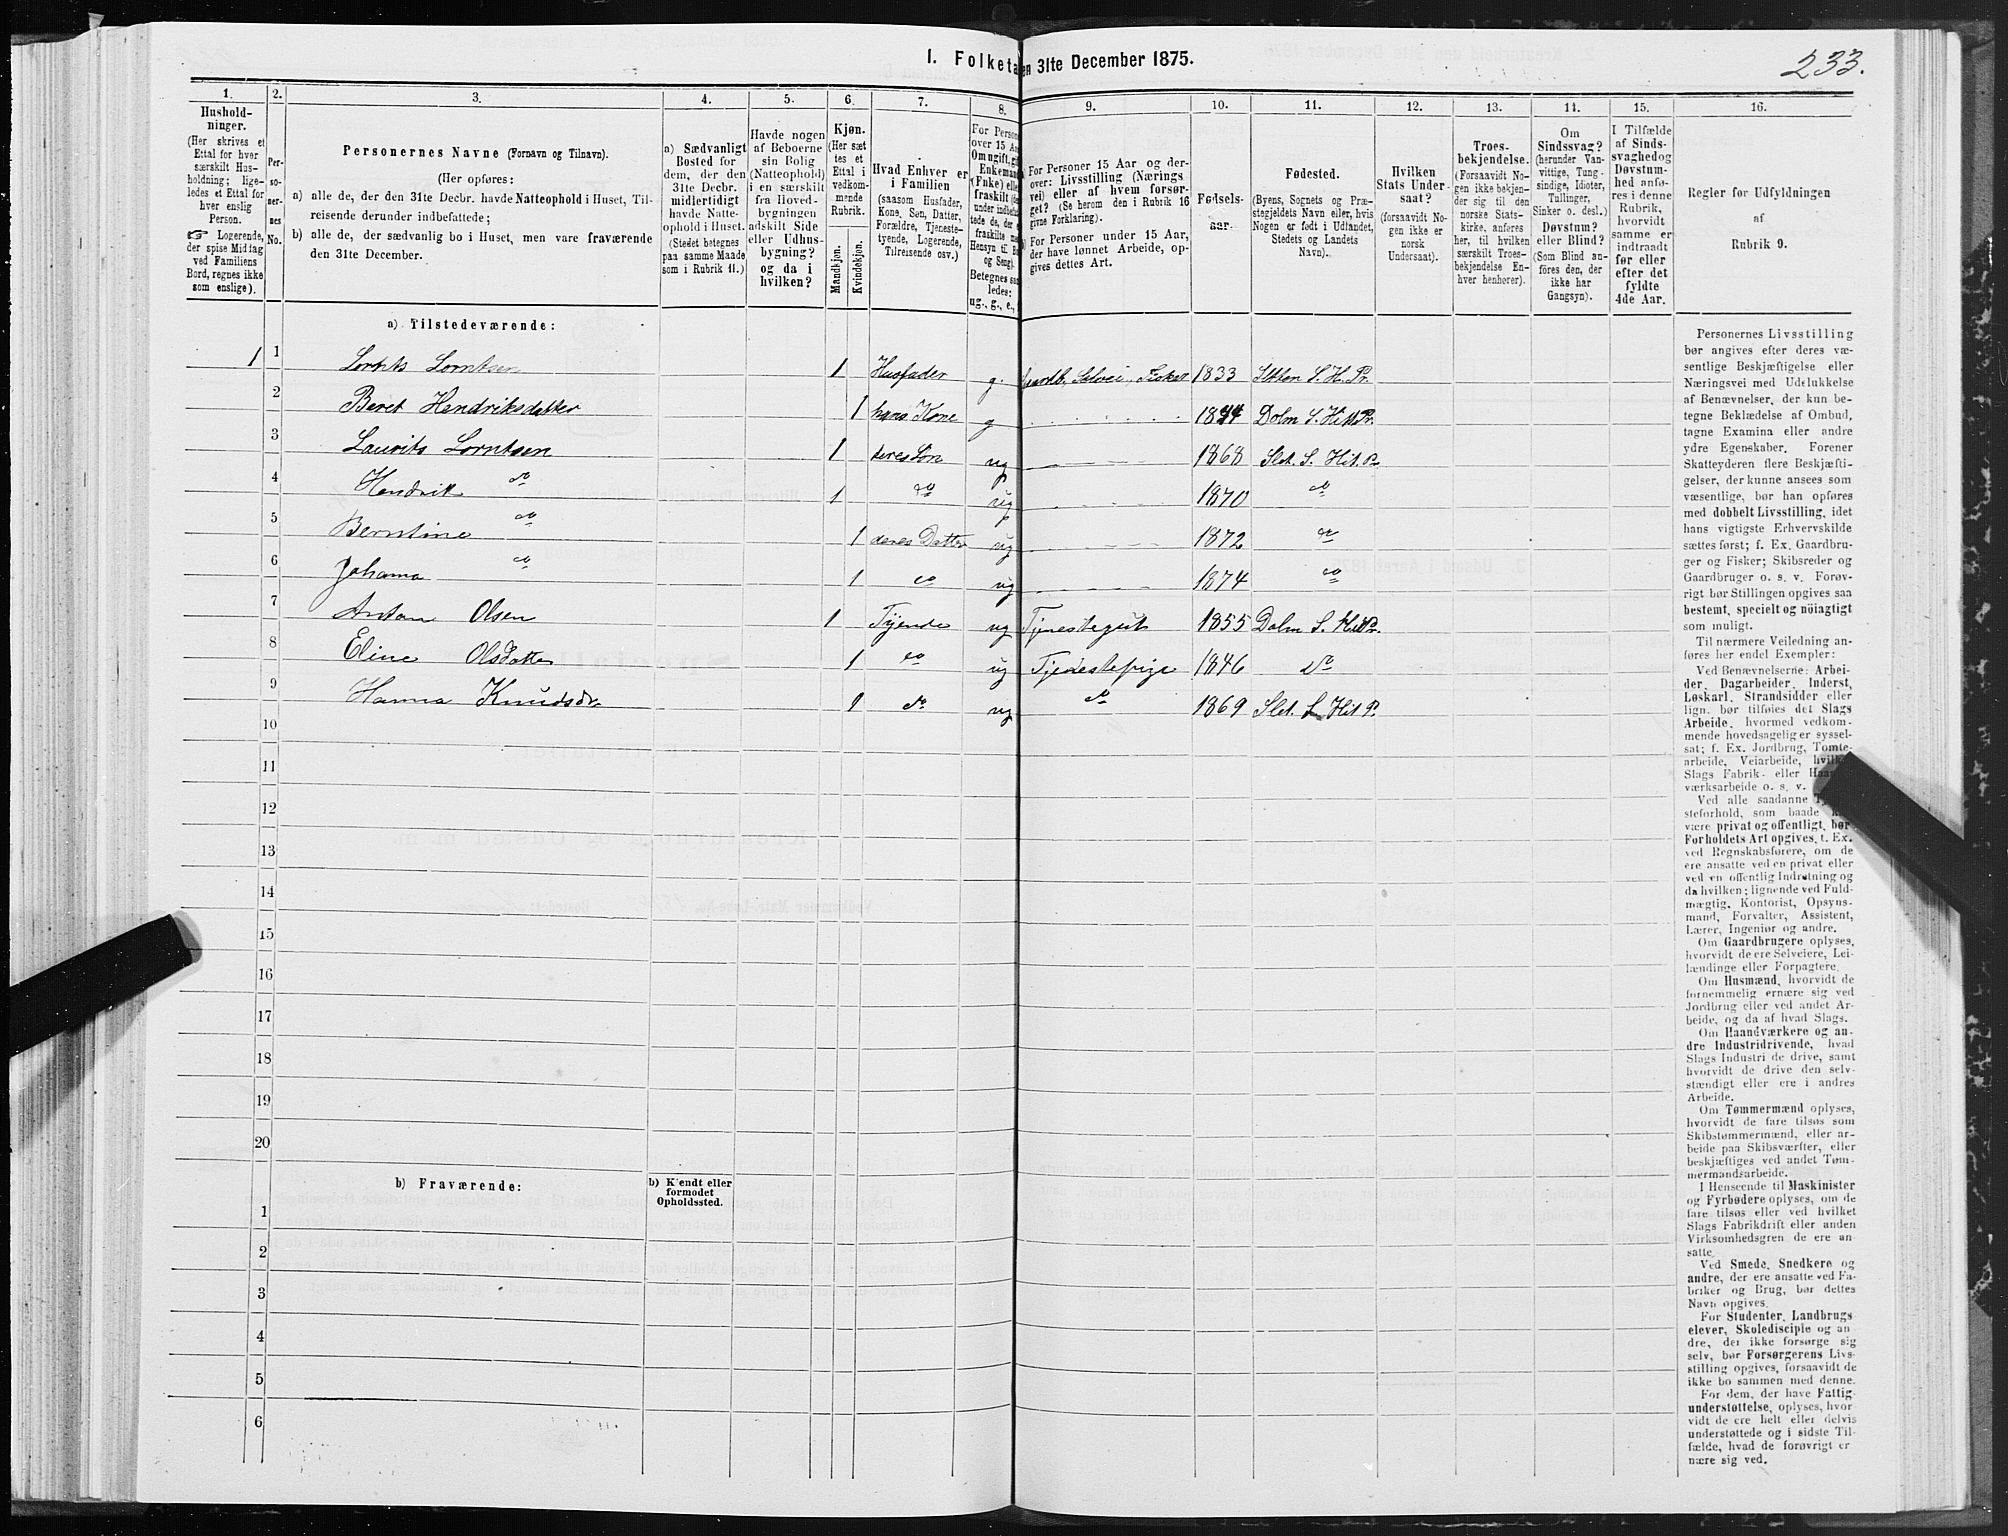 233.
I. Folketa en 31te December 1875.
1. 2. 3. 4. 5. 6. 7. 8. 9. 10. 11. 12. 13. 14. 15. 16.
Hushold-
ninger.
(Her skrives et
Ettal for hver
særskilt Hus-
holdning; lige-
ledes et Ettal for
hver enslig
Person.
☞ Logerende,
der spise Middag
ved Familiens
Bord, regnes ikke
som enslige).
Per-
so-
ner-
nes
No.
Personernes Navne (Fornavn og Tilnavn).
(Her opføres:
a) alle de, der den 31te Decbr. havde Natteophold i Huset, Til-
reisende derunder indbefattede;
b) alle de, der sædvanlig bo i Huset, men vare fraværende
den 31te December.
a) Sædvanligt
Bosted for
dem, der den
31te Decbr.
midlertidigt
havde Natte-
ophold i Huset.
(Stedet betegnes
paa samme Maade
som i Rubrik 11.)
Havde nogen
af Beboerne
sin Bolig
(Natteophold)
i en særskilt
fra Hoved-
bygningen
adskilt Side
eller Udhus-
bygning?
og da i
hvilken?
Kjøn.
(Her sæt
tes et
Ettal i
vedkom-
mende
Rubrik.
Mandkjøn.
Kvindekjøn.
Hvad Enhver er
i Familien
(saasom Husfader,
Kone, Søn, Datter,
Forældre, Tjeneste-
tyende, Logerende,
Tilreisende osv.)
For Person
over 15 Aa
Om ugift, gif
Enkeman
(Enke) elle
fraskilt
Betegnes saa
ledes:
ug., g., e.,
For Personer 15 Aar og der-
over: Livsstilling (Nærings
vei) eller af hvem forsør-
get? (Se herom den i Rubrik 16
givne Forklaring).
For Personer under 15 Aar,
der have lønnet Arbeide, op-
gives dettes Art.
Fødsels-
aar.
Fødested.
(Byens, Sognets og Præ-
stegjeldets Navn eller, hvis
Nogen er født i Udlandet,
Stedets og Landets
Navn).
Hvilken
Stats Under-
saat?
(forsaavidt No-
gen ikke er
norsk
Undersaat).
Troes-
bekjendelse.
(Forsaavidt No-
gen ikke bekjen-
der sig til den
norske Stats-
kirke, anføres
her, til hvilken
særskilt Troes-
bekjendelse En-
hver henhører).
Om
Sindssvag?
(herunder Van-
vittige, Tung-
sindige, Idioter,
Tullinger,
Sinker o. desl.)
Døvstum?
eller Blind?
(Som Blind an-
føres den, der
ikke har
Gangsyn).
I Tilfælde
af Sinds-
svaghed og
Døvstum-
hed anfø-
res i denne
Rubrik,
hvorvidt
samme er
indtraadt
før eller
efter det
fyldte
4de Aar.
Regler for Udfyldningen
af
Rubrik 9.
a) Tilstedeværende:
1 1 Lornts Lorntsen 1 Husfader g. Gaardb. Selvei, Fisker 1833 S. H. Pr.
2 Beret Hendriksdatter 1 hans Kone g 1844 Dolm S. Hit Pr.
3 Laurits Lorntsen 1 deres Søn ug 1868 Slet. S. Hit. P.
4 Hendrik do 1 do ug 1870 do
5 Berntine do 1 deres Datter ug 1872 do
6 Johanna do 1 do ug 1874 do
7 Anton Olsen 1 Tyende ug Tjenestegut 1855 Dolm S. Hit Pr.
8 Eline Olsdatter 1 do ug Tjedestepige 1846 do
9 Hanna Knudsdr. 1 do ug do 1869 Slet. S. Hit P.
10
11
12
13
14
15
16
17
18
19
20
b) Fraværende:
b) Kjendt eller
formodet
Opholdssted.
1
2
3
4
5
6
Personernes Livsstilling
bør angives efter deres væ-
sentlige Beskjæftigelse eller
Næringsvei med Udelukkelse
af Benævnelser, der kun be-
tegne Beklædelse af Ombud,
tagne Examina eller andre
ydre Egenskaber. Forener
Skatteyderen flere Beskjæfti-
gelser, der kunne ansees som
væsentlige, bør han opføres
med dobbelt Livsstilling, idet
hans vigtigste Erhvervskilde
sættes først; f. Ex. Gaardbru-
ger og Fisker; Skibsreder og
Gaardbruger o. s. v. Forøv-
rigt bør Stillingen opgives saa
bestemt, specielt og nöiagtigt
som muligt.
Til nærmere Veiledning an-
føres her endel Exempler:
Ved Benævnelserne: Arbei-
der, Dagarbeider, Inderst,
Løskarl, Strandsidder eller
lign. bør tilføies det Slags
Arbeide, hvormed vedkom-
mende hovedsagelig er syssel-
sat; f. Ex. Jordbrug, Tomte-
arbeide, Veiarbeide, hvilke
Slags Fabrik- eller Haand
værksarbeide o. s. v.
Ved alle saadanne
steforhold, som baade
være privat og offentligt, bør
Forholdets Art opgives, t. Ex.
ved Regnskabsførere, om de
ere ansatte ved en privat eller
ved en offentlig Indretning og
da hvilken; lignende ved Fuld-
mægtig, Kontorist, Opsyns-
mand, Forvalter, Assistent,
Lærer, Ingeniør og andre.
Om Gaardbrugere oplyses,
hvorvidt de ere Selveiere, Lei-
lændinge eller Forpagtere.
Om Husmænd, hvorvidt de
fornemmelig ernære sig ved
Jordbrug eller ved andet Ar-
beide, og da af hvad Slags.
Om Haandværkere og an-
dre Industridrivende, hvad
Slags Industri de drive, samt
hvorvidt de drive den selv-
stændigt eller ere i andres
Arbeide.
Om Tømmermænd oplyses,
hvorvidt de fare tilsøs som
Skibstømmermænd, eller ar-
beide paa Skibsværfter, eller
beskjæftiges ved andet Tøm-
mermandsarbeide.
I Henseende til Maskinister
og Fyrbødere oplyses, om de
fare tilsøs eller ved hvilket
Slags Fabrikdrift eller anden
Virksomhedsgren de ere an-
satte.
Ved Smede, Snedkere og
andre, der ere ansatte ved Fa-
briker og Brug, bør dettes
Navn opgives.
For Studenter, Landbrugs
elever, Skoledisciple og an
dre, der ikke forsørge sig
selv, bør Forsørgerens Livs-
stilling opgives, forsaavidt de
ikke bo sammen med denne.
For dem, der have Fattig-
understøttelse, oplyses, hvor
vidt de ere helt eller delvis
understøttede og i sidste Til-
fælde, hvad de forøvrigt er
nære sig ved.